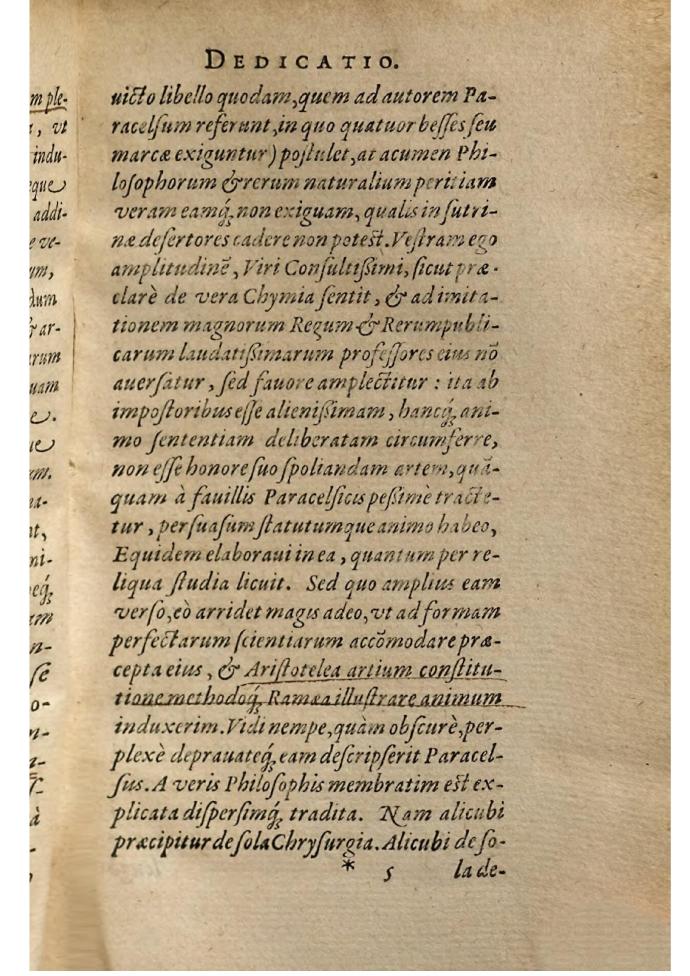 DEDICATIO.
uicto libello quodam, quem ad autorem Pa-
racelſum referunt, in quo quatuor beſſes ſeu
marcæ exiguntur) poſtulet, at acumen Phi-
loſophorum & rerum naturalium peritiam
veram eamq́; non exiguam, qualis in ſutri-
næ deſertores cadere non poteſt. Veſtram ego
amplitudinẽ, Viri Conſultißimi, ſicut præ-
clarè de vera Chymia ſentit, & ad imita-
tionem magnorum Regum & Rerumpubli-
carum laudatißimarum profeſſores eius nõ
auerſatur, ſed fauore amplectitur : ita ab
impoſtoribus eſſe alienißimam, hancq́; ani-
mo ſententiam deliberatam circumferre,
non eſſe honore ſuo ſpoliandam artem, quã-
quam à fauillis Paracelſicis peßimè tracte-
tur, perſuaſum ſtatutumque animo habeo,
Equidem elaboraui in ea, quantum per re-
liqua ſtudia licuit. Sed quo amplius eam
verſo, eò arridet magis adeo, vt ad formam
perfectarum ſcientiarum accõmodare præ-
cepta eius, & Ariſtotelea artium conſtitu-
tione methodoq́; Ramæa illuſtrare animum
induxerim. Vidi nempe, quàm obſcurè, per-
plexè deprauateq́; eam deſcripſerit Paracel-
ſus. A veris Philoſophis membratim eſt ex-
plicata diſperſimq́; tradita. Nam alicubi
præcipitur de ſola Chryſurgia. Alicubi de ſo-
* 5 la de-
m ple-
, vt
indu-
eque
addi-
e ve-
um,
dum
& ar-
rum
uam
e.
ue
rm.
na-
nt,
ni-
eq́;
am
n-
ſe
o-
n-
n-
à
-